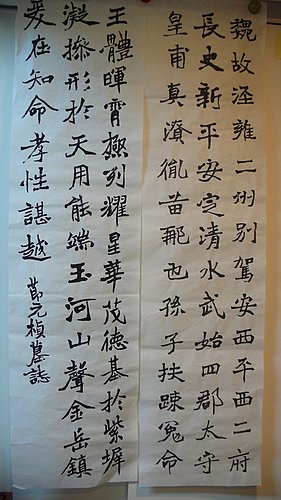 魏故涇雍二州別駕安西平西二府
長史新平安定清水武始四郡太守
皇甫真瀆胤苗也孫子扶踈冤命
王體暉霄極列耀星華茂德基於紫墀
凝操形於天用能端玉河山聲金岳鎮
爰在知命孝性諶越 節元楨墓誌